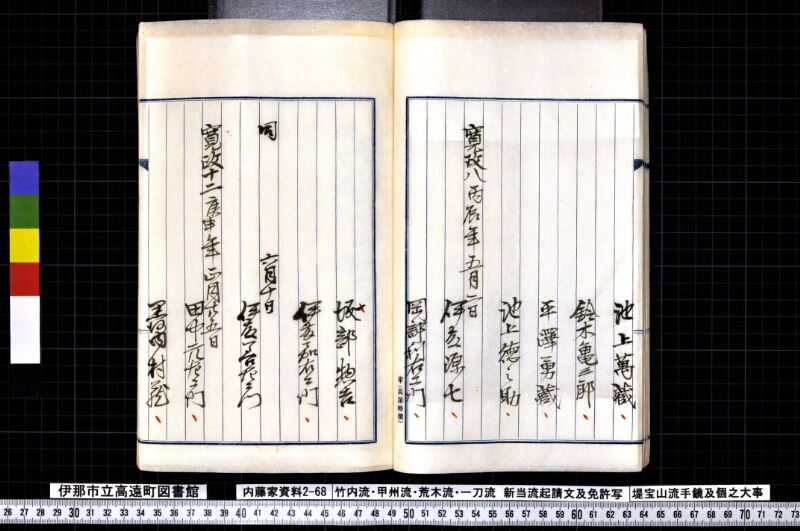 池上萬藏
鈴木亀三郎
平澤勇藏
池上徳之助
寛政八丙辰年五月二日
伊藤源七
岡部
坂部惣吉
伊藤
同 六月十日
伊藤
寛政十二庚申年正月廿五日
田中
黒河内村藏
伊那市立高遠町図書館
内藤家資料2-68
竹内流・甲州流・荒木流・一刀流 新当流起請文及免許写
堤宝山流手鏡及個之大事
26 27 28 29 30 31 32 33 34 35 36 37 38 39 40 41 42 43 44 45 46 47 48 49 50 51 52 53 54 55 56 57 58 59 60 61 62 63 64 65 66 67 68 69 70 71 72 73